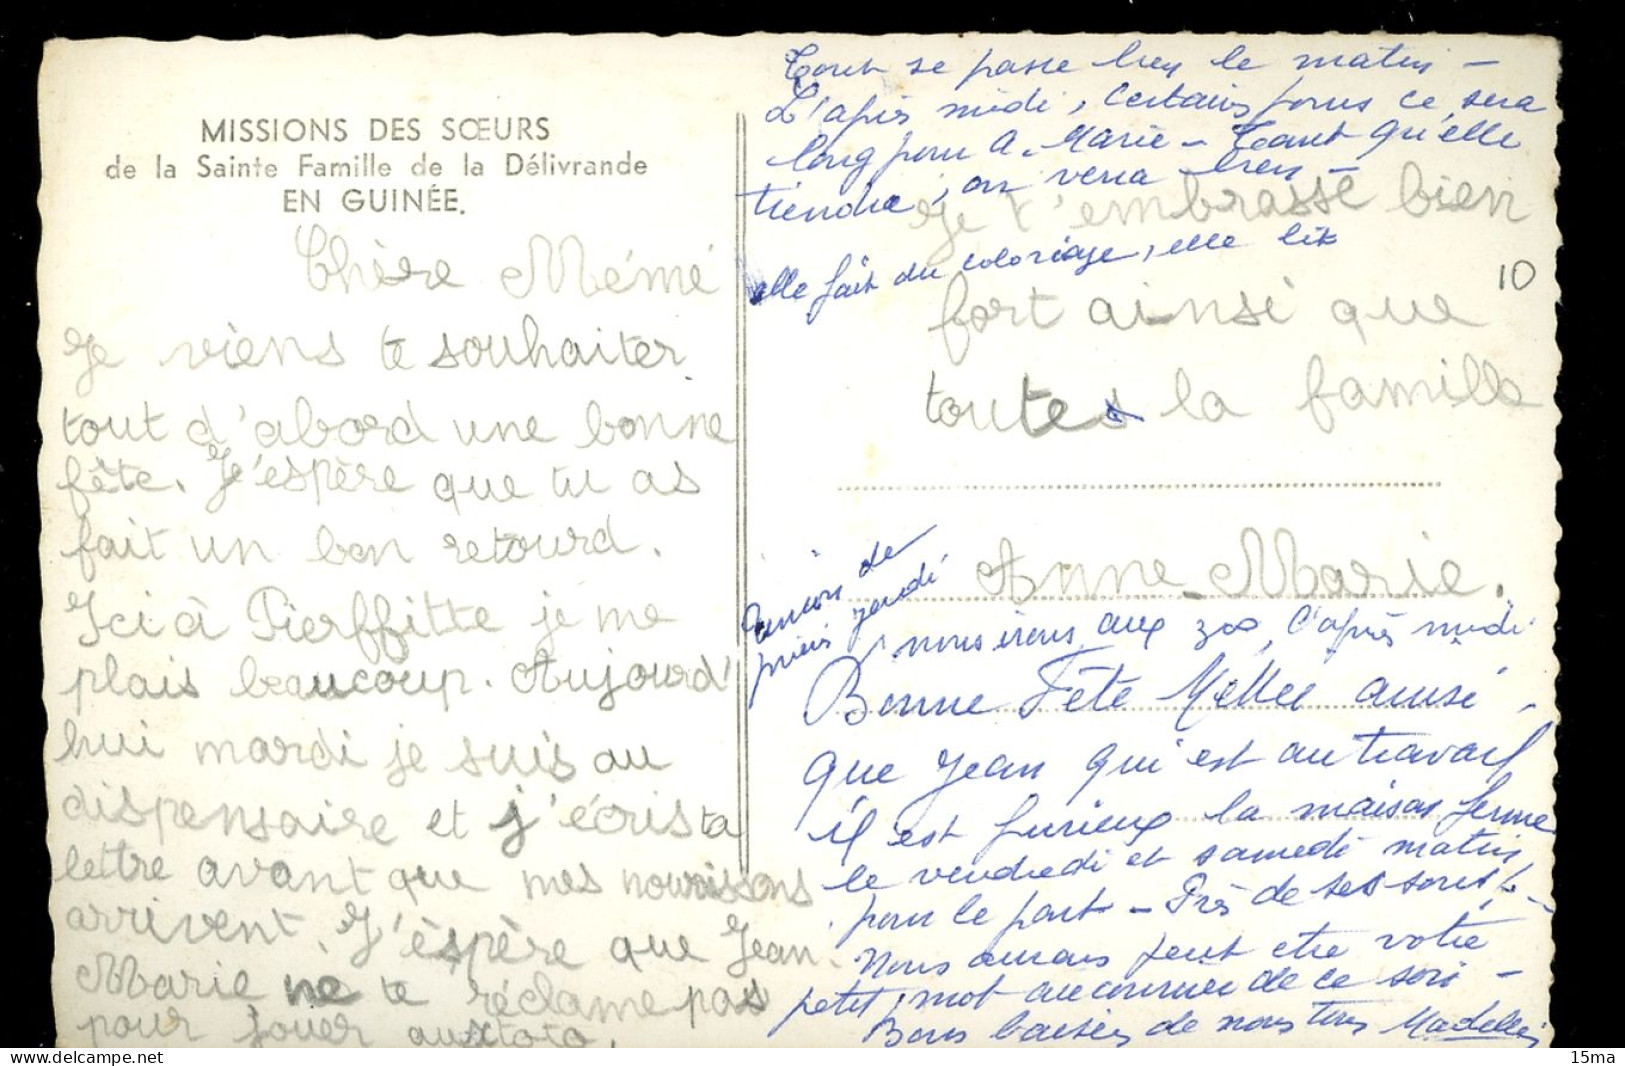 MISSIONS DES SŒURS
de la Sainte Famille de la Délivrande
EN GUINÉE.
Chère Mémé
Je viens te souhaiter
tout d'abord une bonne
fête. J'espère que tu as
fait un bon retourd.
Ici à Pierffitte je me
plais beaucoup. Aujourd'
hui mardi je suis au
dispensaire et j'écris ta
lettre avant que mes nourissons
arrivent. J'èspère que Jean.
Marie ne te réclame pas
pour jouer aux toto.
Je t'embrasse bien
fort ainsi que
toutes la famille
Anne-Marie.
Tout se passe bien le matin -
L'après midi, certains jours ce sera
long pour A. Marie - Tant qu'elle
tiendra, on verra bien -
elle fait du coloriage, elle lit
10
de
jeudi
nous irons aux zoo, l'après midi
Bonne Fête Mémée aussi -
que Jean qui est au travail
il est furieux la maison ferme
le vendredi et samedi matin,
pour le pont - Près de ses sous!. -
Nous aurons peut etre votre
petit mot au courrier de ce soir -
Bons baisers de nous tous Madeleine
15ma